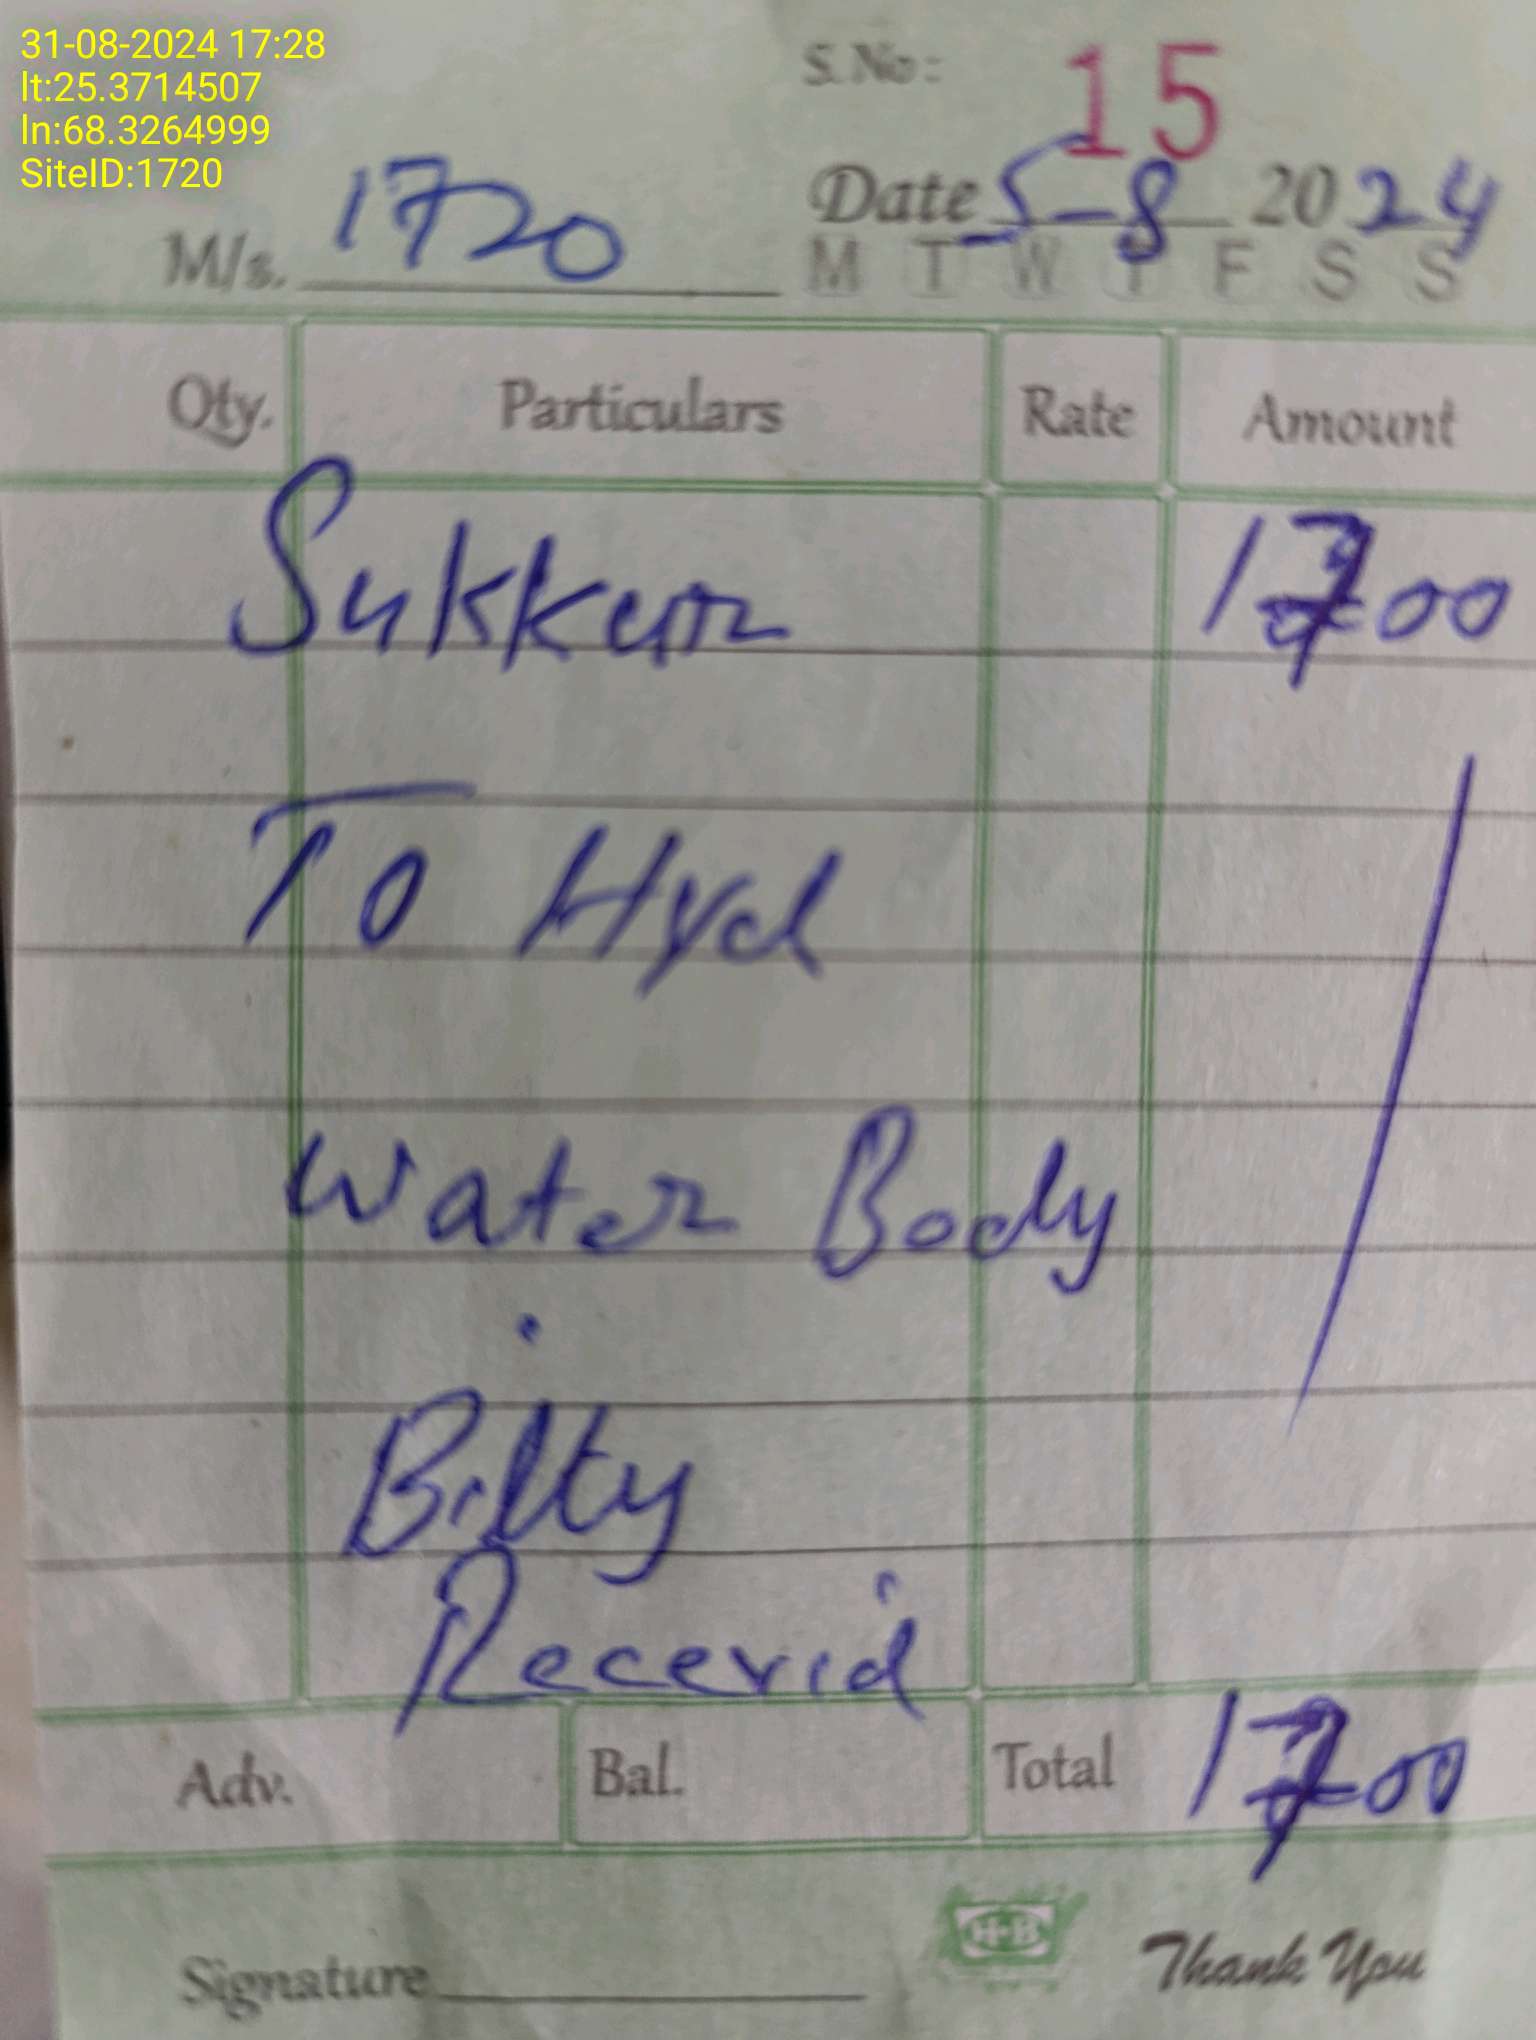 31-08-2024 17:28
lt:25.3714507
ln:68.3264999
SiteID:1720
S.No: 15
Date 5-8 2024
M/s. 1720
M T W T F S S
Qty. Particulars Rate Amount
Sukkur 1700
To Hyd
Water Body
Bilty
Recevid
Adv. Bal. Total 1700
Signature
H-B
Thank You